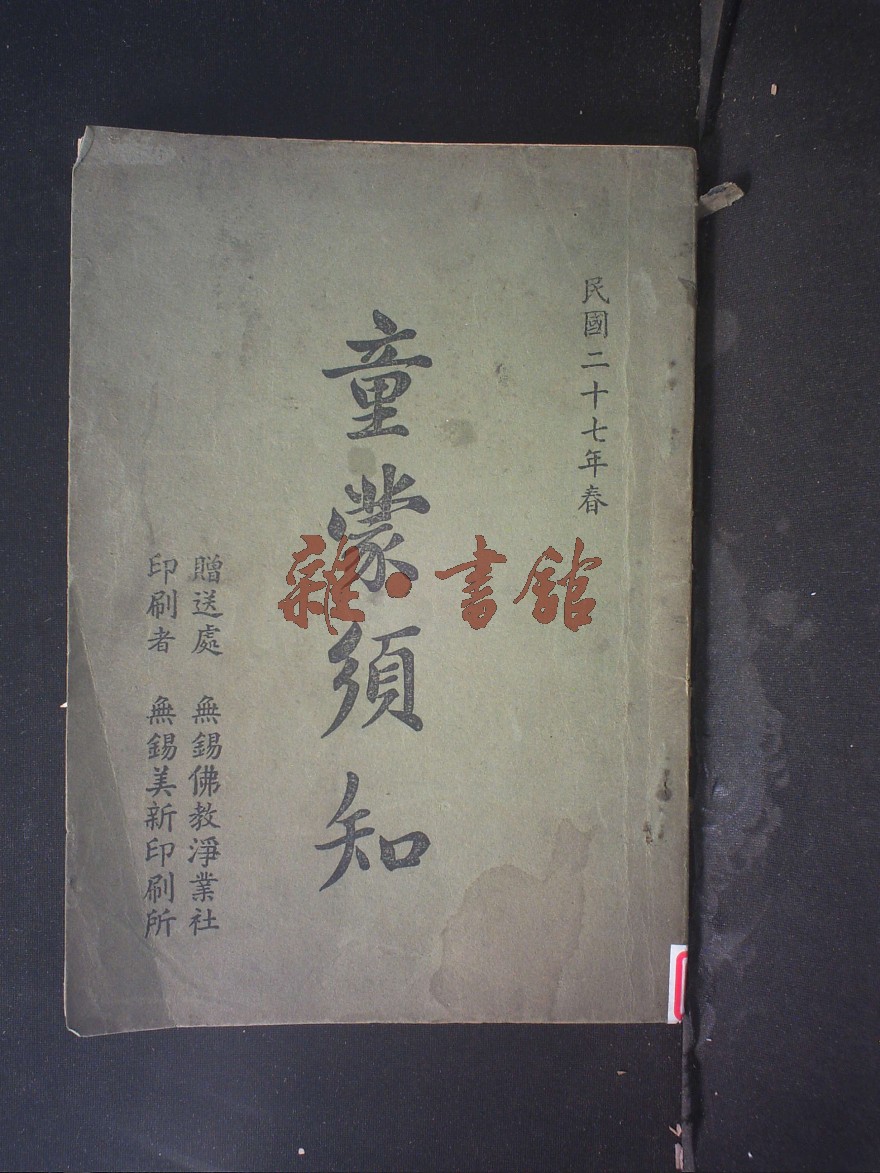 民國二十七年春
童蒙須知
贈送處　無錫佛教淨業社
印刷者　無錫美新印刷所
雜·書館